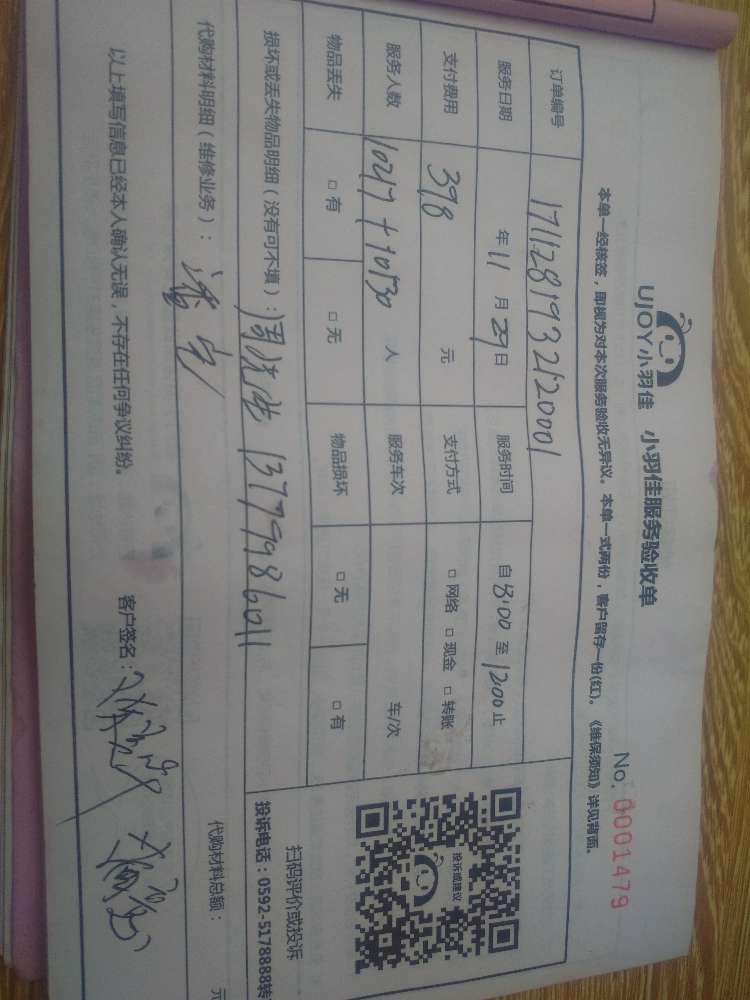 UJOY小羽佳 小羽佳服务验收单
No. 0001479
本单一经核签，即视为对本次服务验收无异议。本单一式两份，客户留存一份(红)。《维保须知》详见背面。
订单编号 1711281932120001
服务日期 年 11 月 29 日 服务时间 自 8:00 至 1200 止
支付费用 398 元 支付方式 □ 网络 □ 现金 □ 转账
服务人数 10217+10530 人 服务车次 车/次
物品丢失 □ 有 □ 无 物品损坏 □ 无 □ 有
投诉或建议
扫码评价或投诉
投诉电话：0592-5178888转
损坏或丢失物品明细（没有可不填）： 13779986011
代购材料明细（维修业务）：
代购材料总额： 元
以上填写信息已经本人确认无误，不存在任何争议纠纷。
客户签名：